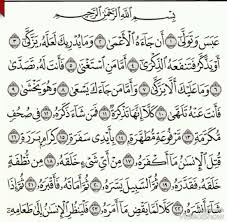 بِسْمِ ٱللَّهِ ٱلرَّحْمَٰنِ ٱلرَّحِيمِ
عَبَسَ وَتَوَلَّىٰٓ ١ أَن جَآءَهُ ٱلْأَعْمَىٰ ٢ وَمَا يُدْرِيكَ لَعَلَّهُۥ يَزَّكَّىٰٓ ٣
أَوْ يَذَّكَّرُ فَتَنفَعَهُ ٱلذِّكْرَىٰٓ ٤ أَمَّا مَنِ ٱسْتَغْنَىٰ ٥ فَأَنتَ لَهُۥ تَصَدَّىٰ ٦
وَمَا عَلَيْكَ أَلَّا يَزَّكَّىٰ ٧ وَأَمَّا مَن جَآءَكَ يَسْعَىٰ ٨ وَهُوَ يَخْشَىٰ ٩
فَأَنتَ عَنْهُ تَلَهَّىٰ ١٠ كَلَّآ إِنَّهَا تَذْكِرَةٌ ١١ فَمَن شَآءَ ذَكَرَهُۥ ١٢ فِى صُحُفٍ
مُّكَرَّمَةٍ ١٣ مَّرْفُوعَةٍ مُّطَهَّرَةٍۭ ١٤ بِأَيْدِى سَفَرَةٍ ١٥ كِرَامٍۭ بَرَرَةٍ ١٦
قُتِلَ ٱلْإِنسَٰنُ مَآ أَكْفَرَهُۥ ١٧ مِنْ أَىِّ شَىْءٍ خَلَقَهُۥ ١٨ مِن نُّطْفَةٍ
خَلَقَهُۥ فَقَدَّرَهُۥ ١٩ ثُمَّ ٱلسَّبِيلَ يَسَّرَهُۥ ٢٠ ثُمَّ أَمَاتَهُۥ فَأَقْبَرَهُۥ ٢١ ثُمَّ إِذَا
شَآءَ أَنشَرَهُۥ ٢٢ كَلَّا لَمَّا يَقْضِ مَآ أَمَرَهُۥ ٢٣ فَلْيَنظُرِ ٱلْإِنسَٰنُ إِلَىٰ طَعَامِهِۦٓ